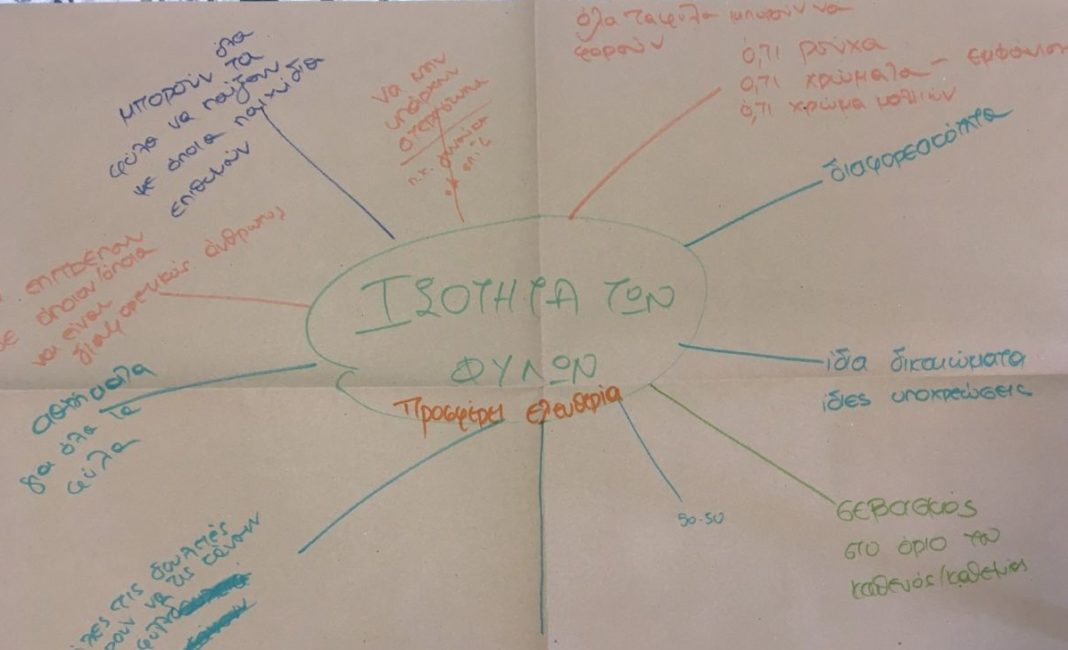 όλα τα φύλα μπορούν να
φορούν
ό,τι ρούχα
ό,τι χρώματα - εμφάνιση
ό,τι χρώμα μαλλιών
μπορούν όλα
τα
φύλα να παίξουν
με όποια παιχνίδια
επιθυμούν
να μην
υπάρχουν
στερεότυπα
π.χ. γυναίκα
διαφορετικότητα
επιτρέπεται
όποιον/όποια
να είναι
διαφορετικός άνθρωπος
ΙΣΟΤΗΤΑ ΤΩΝ
ΦΥΛΩΝ
Προσφέρει ελευθερία
ίδια δικαιώματα
ίδιες υποχρεώσεις
αθλήματα
για όλα τα
φύλα
50-50
σεβασμός
στο όριο του
καθενός/καθεμιάς
τις δουλειές
να τις κάνουν
φύλα